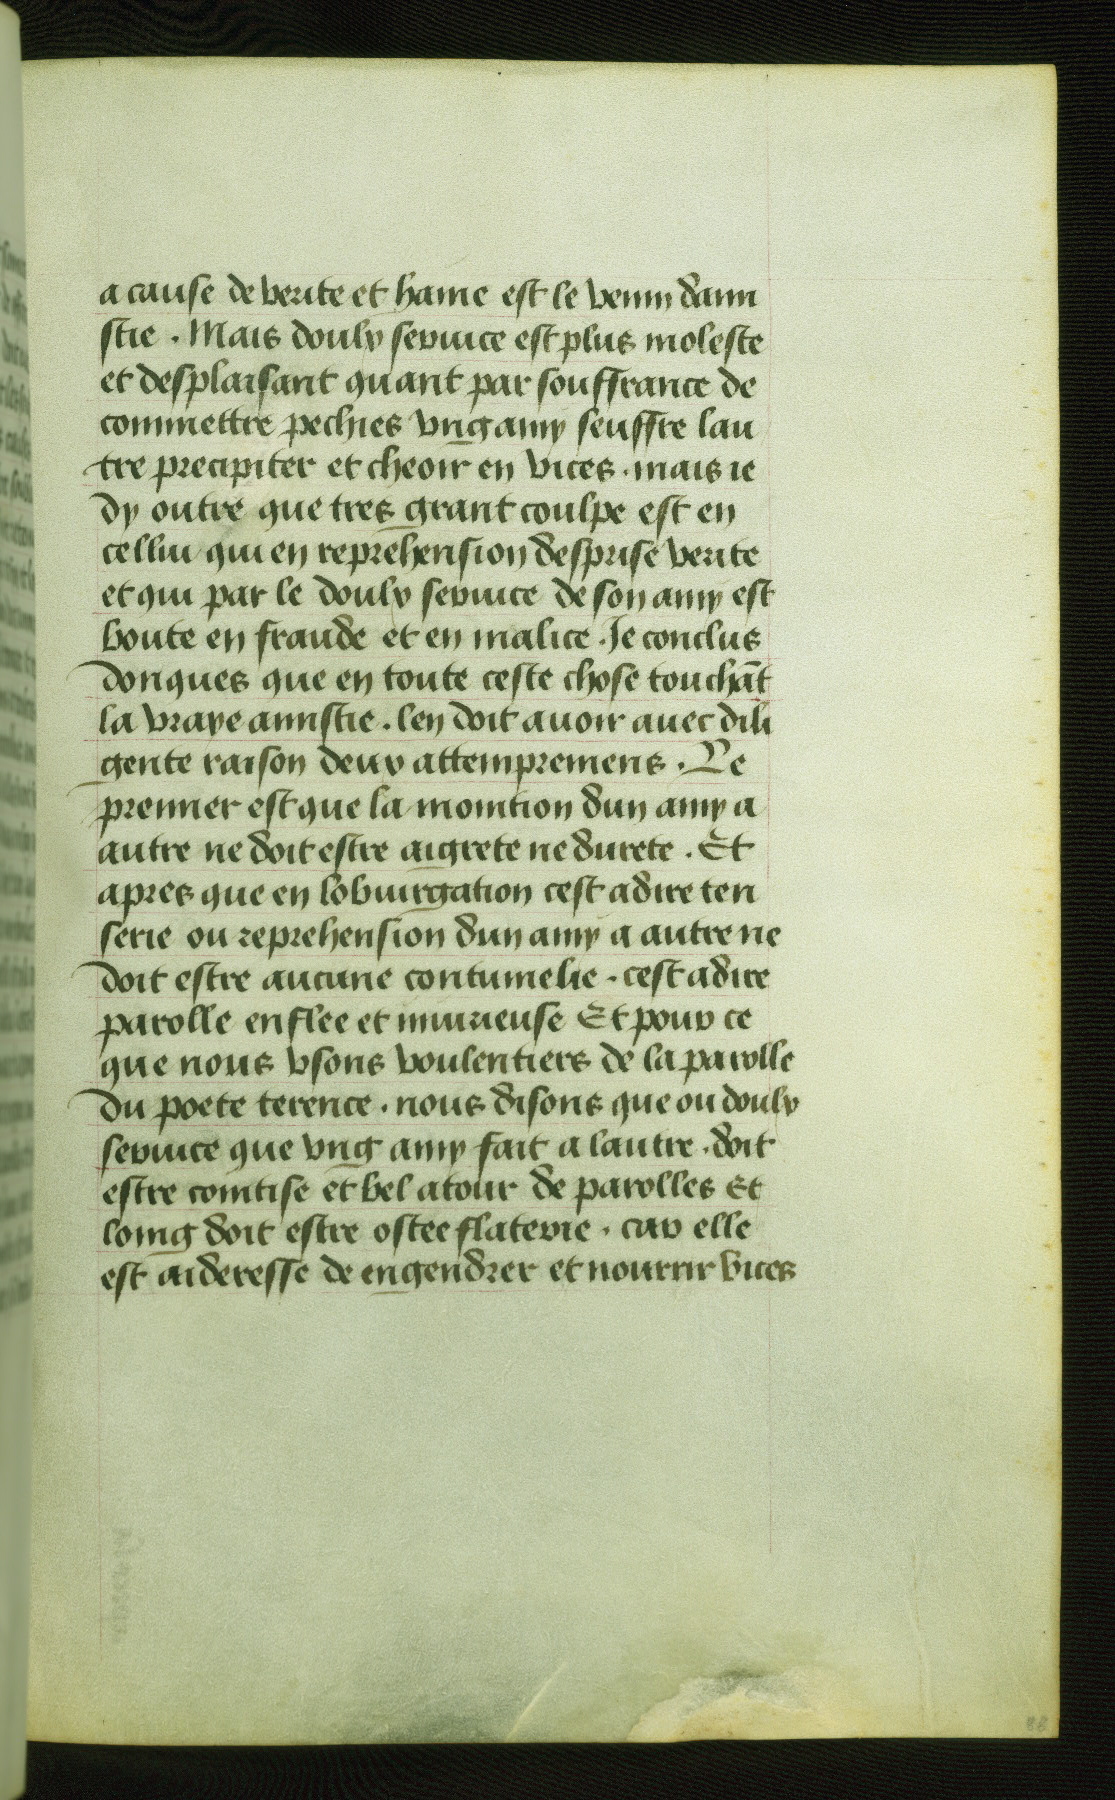 a cause de verite et haine est le venin dami
stie . Mais doulx seruice est plus moleste
et desplaisant quant par souffrance de
commettre pechies vng amy seuffre lau
tre precipiter et cheoir en vices . mais ie
dy outre que tres grant coulpe est en
cellui qui en reprehension desprise verite
et qui par le doulx seruice de son amy est
boute en fraude et en malice . Je conclus
donques que en toute ceste chose touchāt
la vraye amistie . len doit auoir auec dili
gente raison deux attempremens . Le
premier est que la monition dun amy a
autre ne doit estre aigrete ne durete . Et
apres que en lobiurgation cest adire ten
serie ou reprehension dun amy a autre ne
doit estre aucune contumelie . cest adire
parolle enflee et iniurieuse Et pour ce
que nous vsons voulentiers de la parolle
du poete terence . nous disons que ou doulx
seruice que vng amy fait a lautre . doit
estre cointise et bel atour de parolles Et
loing doit estre ostee flaterie . car elle
est aideresse de engendrer et nourrir vices
88